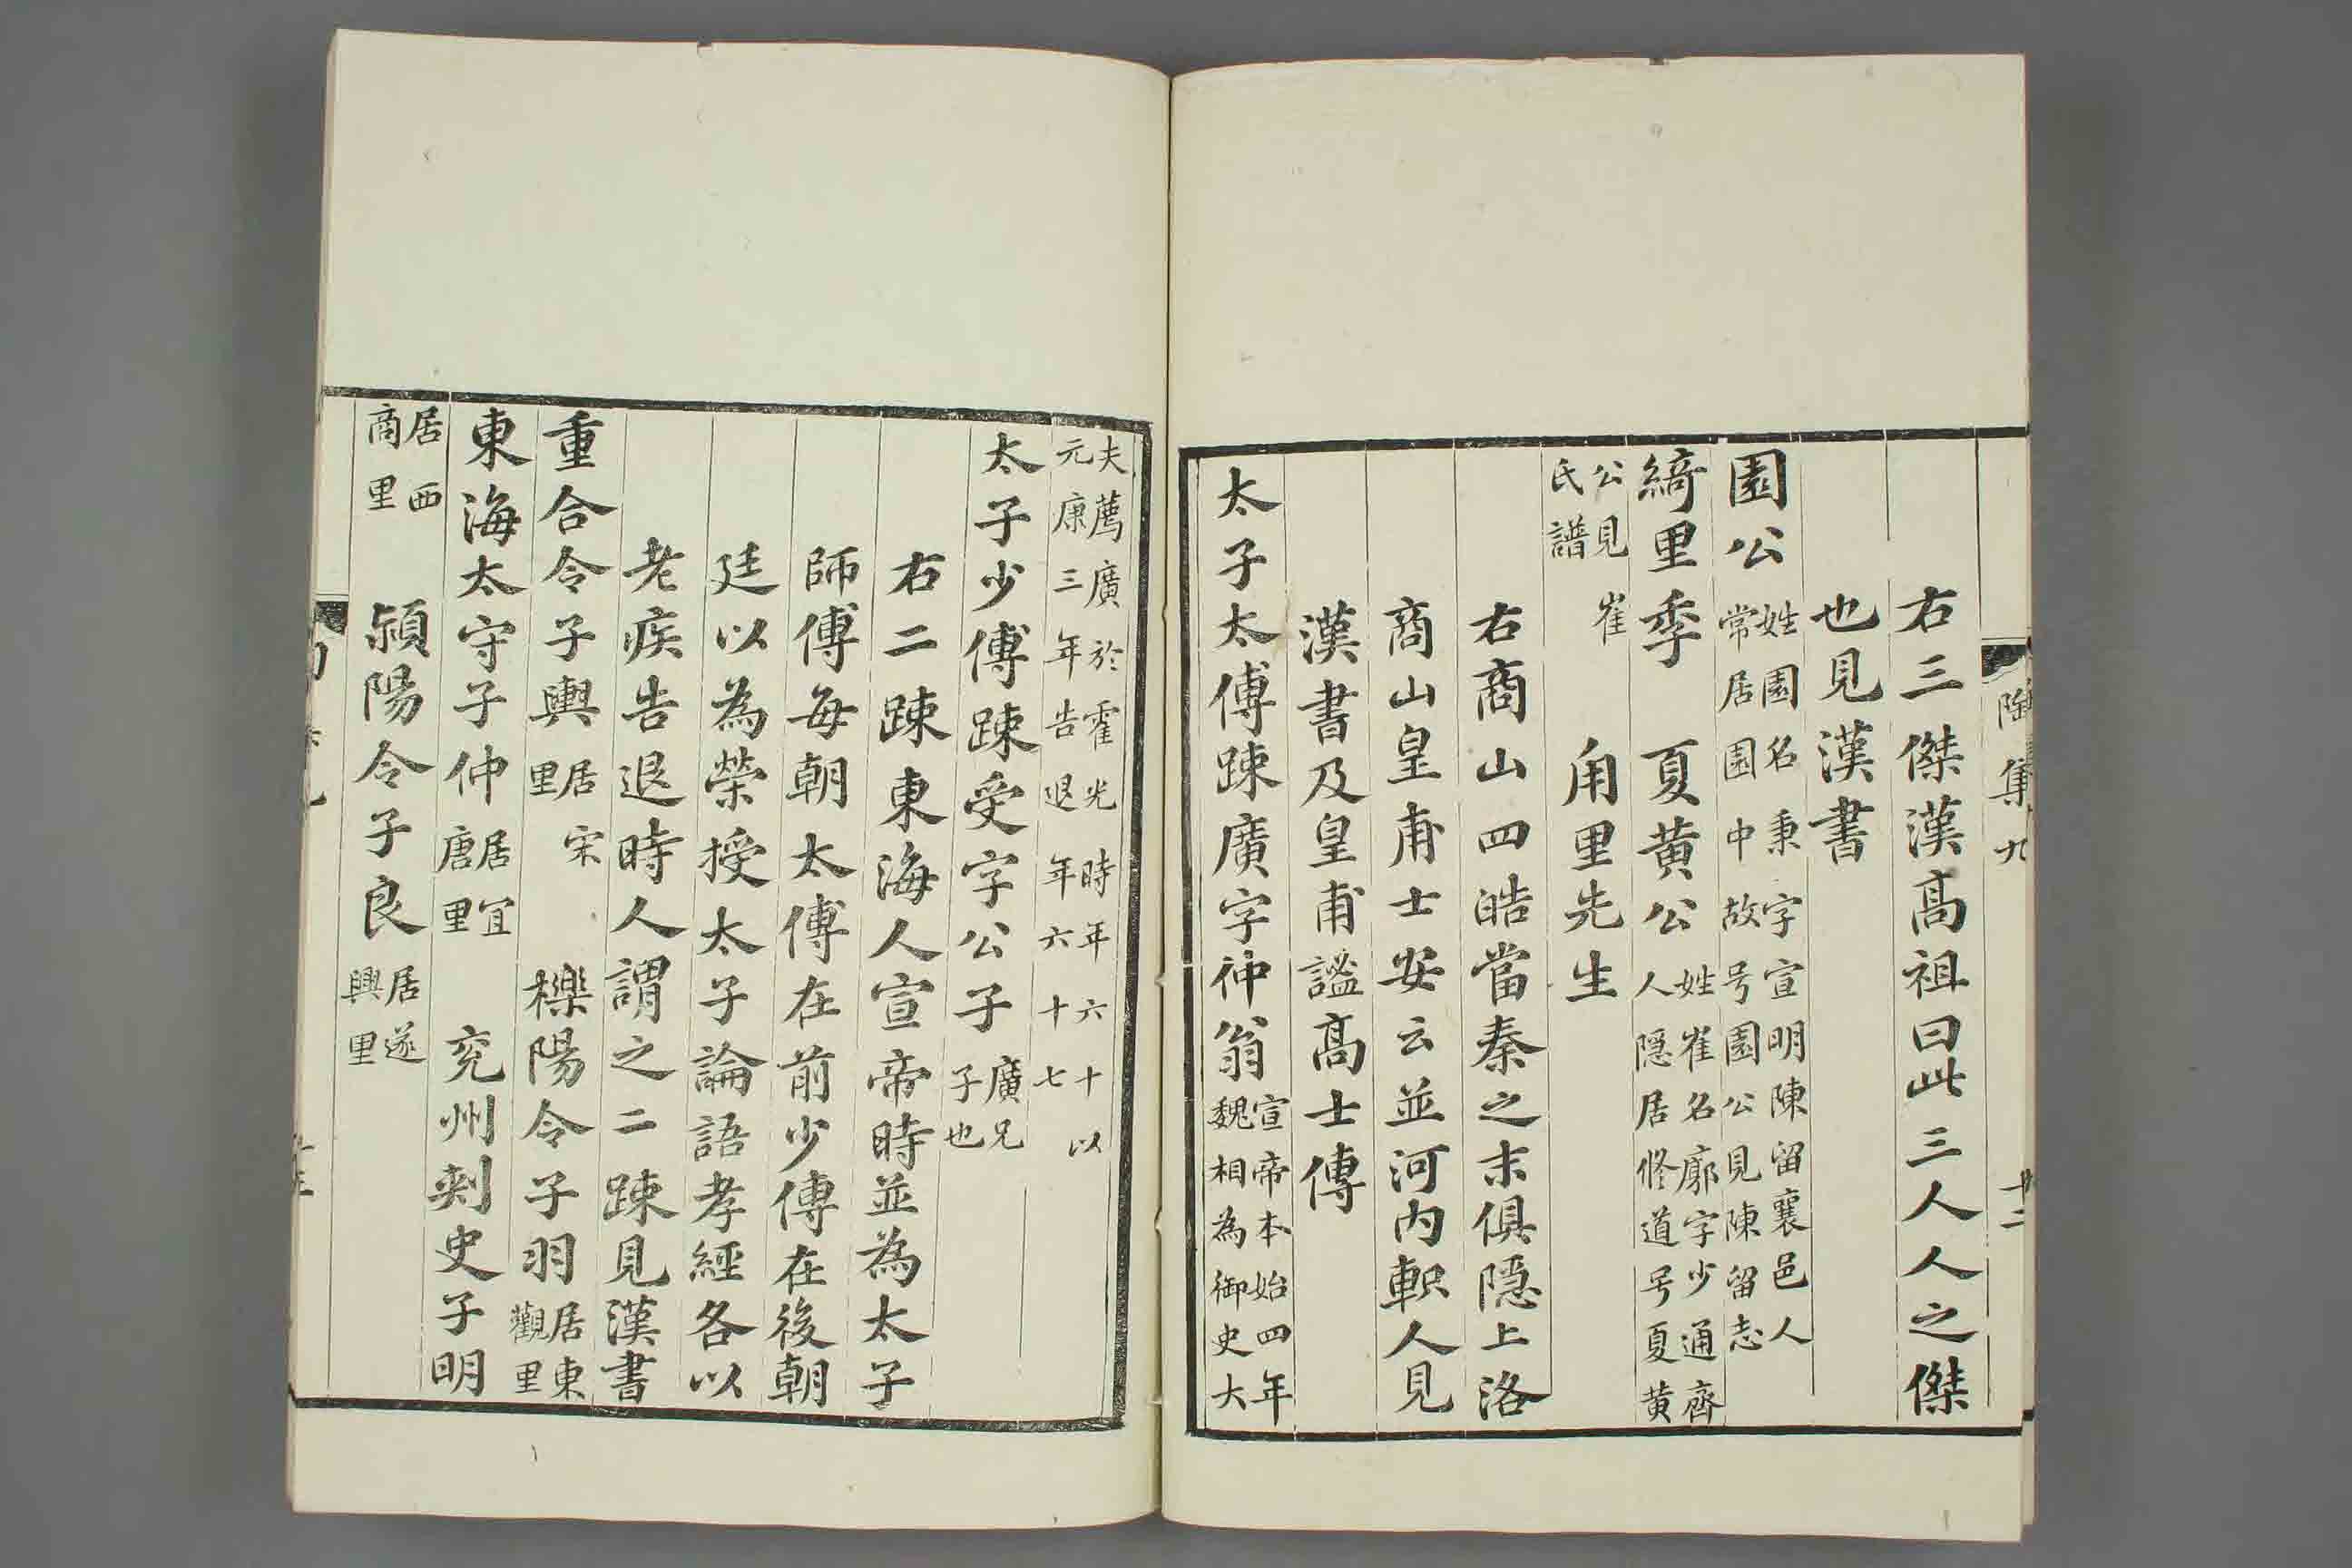 陶集九
十二
右三傑漢高祖曰此三人人之傑
也見漢書
園公姓園名秉字宣明陳留襄邑人
常居園中故号園公見陳留志
綺里季 夏黄公姓崔名廓字少通齊
人隠居修道号夏黄
公見崔
氏譜
甪里先生
右商山四皓當秦之末俱隠上洛
商山皇甫士安云並河内軹人見
漢書及皇甫謐高士傳
太子太傅踈廣字仲翁宣帝本始四年
魏相為御史大
夫薦廣於霍光時年六十以
元康三年告退年六十七
太子少傅踈受字公子廣兄
子也
右二踈東海人宣帝時並為太子
師傅每朝太傅在前少傅在後朝
廷以為榮授太子論語孝經各以
老疾告退時人謂之二踈見漢書
重合令子輿居宋
里
櫟陽令子羽居東
觀里
東海太守子仲居宜
唐里
兖州刾史子明
居西
商里
潁陽令子良居遂
興里